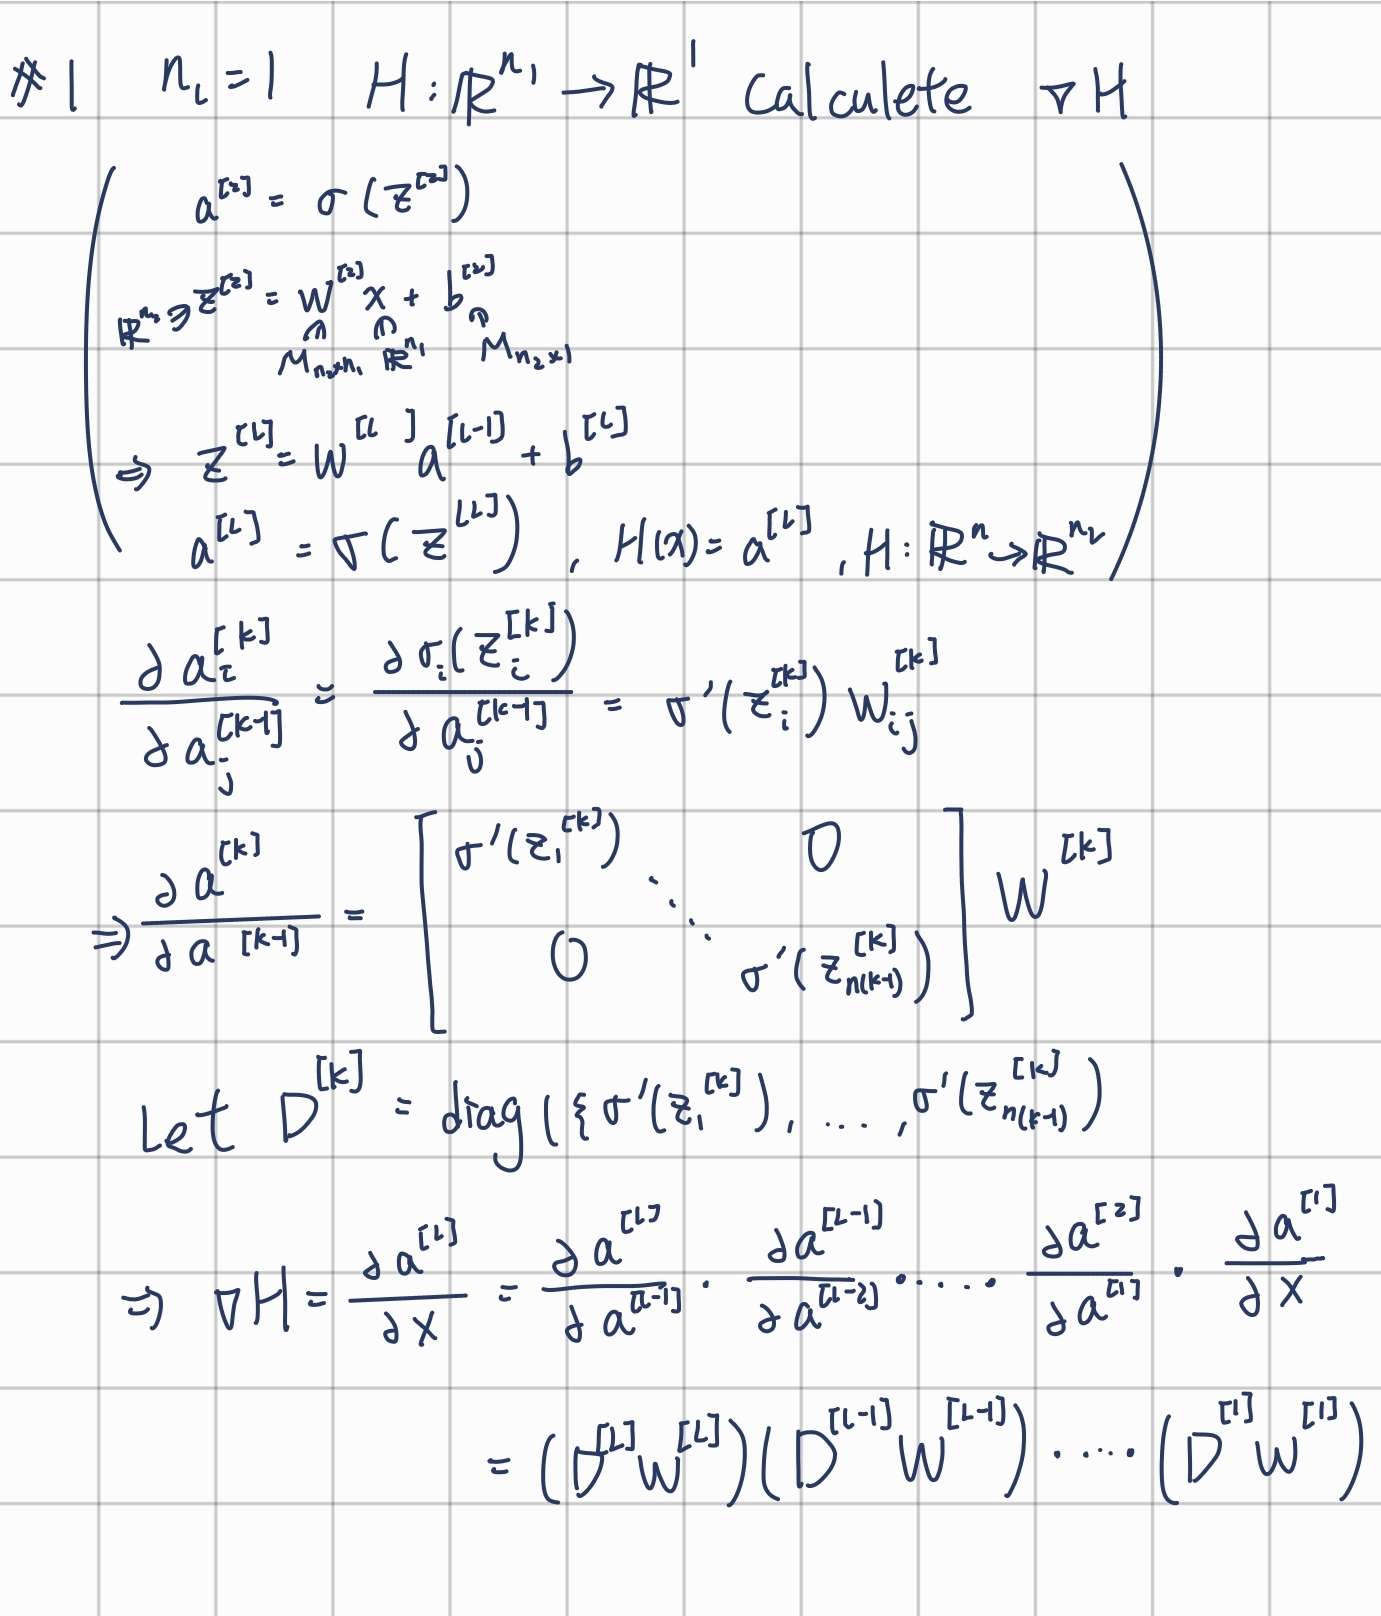 #1 n_L = 1 H : ℝ^{n_1} → ℝ^1 Calculete ∇H
a^{[2]} = σ(z^{[2]})
ℝ^{n_2} ∋ z^{[2]} = W^{[2]} x + b^{[2]}
M_{n_2×n_1} ℝ^{n_1} M_{n_2×1}
⇒ z^{[L]} = W^{[L]} a^{[L-1]} + b^{[L]}
a^{[L]} = σ(z^{[L]}) , H(x) = a^{[L]} , H : ℝ^n → ℝ^{n_L}
∂a_i^{[k]} / ∂a_j^{[k-1]} = ∂σ_i(z_i^{[k]}) / ∂a_j^{[k-1]} = σ'(z_i^{[k]}) W_{ij}^{[k]}
⇒ ∂a^{[k]} / ∂a^{[k-1]} = [ σ'(z_1^{[k]}) 0 ⋱ 0 σ'(z_{n(k-1)}^{[k]}) ] W^{[k]}
Let D^{[k]} = diag({σ'(z_1^{[k]}), ...., σ'(z_{n(k-1)}^{[k]})
⇒ ∇H = ∂a^{[L]} / ∂x = ∂a^{[L]} / ∂a^{[L-1]} · ∂a^{[L-1]} / ∂a^{[L-2]} · .... · ∂a^{[2]} / ∂a^{[1]} · ∂a^{[1]} / ∂x
= (D^{[L]} W^{[L]})(D^{[L-1]} W^{[L-1]}) ····· (D^{[1]} W^{[1]})